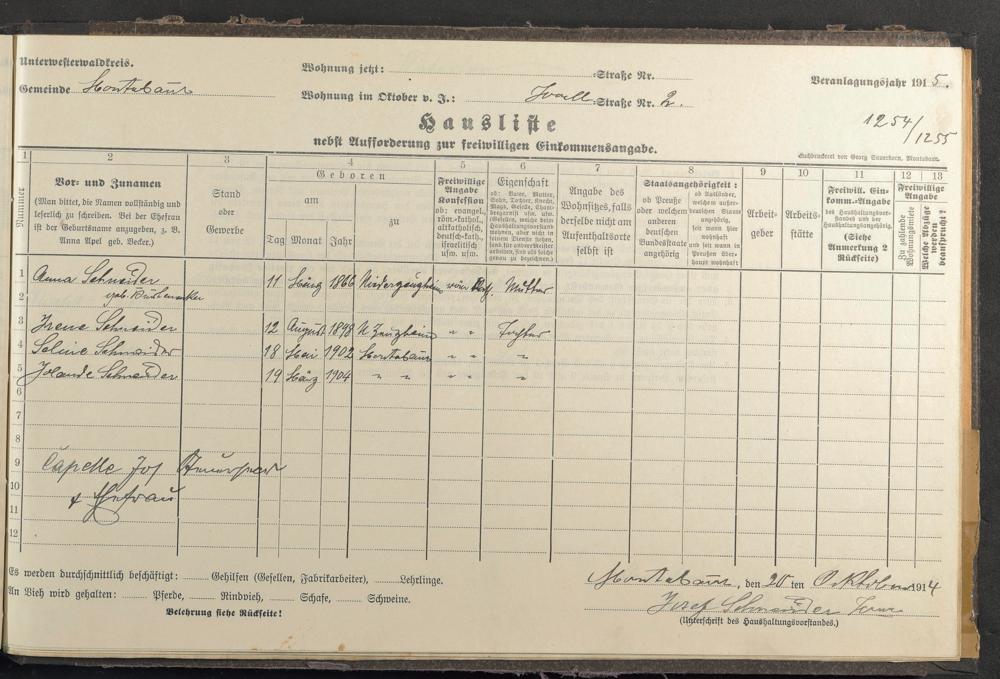 Unterwesterwaldkreis.
Gemeinde Montabaur
Wohnung jetzt: Straße Nr.
Wohnung im Oktober v. J.: Straße Nr. 2.
Veranlagungsjahr 1915.
1254/1255
Hausliste
nebst Aufforderung zur freiwilligen Einkommensangabe.
Buchdruckerei von Georg Sauerborn, Montabaur.
1 2 3 4 5 6 7 8 9 10 11 12 13
Nummer
Vor- und Zunamen
(Man bittet, die Namen vollständig und
leserlich zu schreiben. Bei der Ehefrau
ist der Geburtsname anzugeben, z. B.
Anna Apel geb. Becker.)
Stand
oder
Gewerbe
Geboren
am
Tag Monat Jahr
zu
Freiwillige
Angabe
Konfession
ob: evangel.,
röm.-kathol.,
altkatholisch,
deutsch-kath.,
israelitisch
usw. usw.
Eigenschaft
ob: Vater, Mutter,
Sohn, Tochter, Knecht,
Magd, Geselle,
Angabe des
Wohnsitzes, falls
derselbe nicht am
Aufenthaltsorte
selbst ist
Staatsangehörigkeit:
ob Preuße
oder welchem
anderen
deutschen
Bundesstaate
angehörig
ob Ausländer,
welchem außer-
deutschen Staate
angehörig,
seit wann hier
wohnhaft
und seit wann in
Preußen über-
haupt wohnhaft
Arbeit-
geber
Arbeits-
stätte
Freiwill. Ein-
komm.-Angabe
des Haushaltungsvor-
standes und der
Haushaltungsangehörig.
(Siehe
Anmerkung 2
Rückseite)
Freiwillige
Angabe
Zu zahlende
Wohnungsmiete
Welche Abzüge
werden
beansprucht?
1 Anna Schneider 11 März 1866 röm. Kath. Mutter
2 geb.
3 Irene Schneider 12 August 1898 " " Tochter
4 Schneider 18 Mai 1902 Montabaur " " "
5 Jolande Schneider 19 März 1904 " " " " "
6
7
8
9 Capelle Jos
10 & Ehefrau
11
12
Es werden durchschnittlich beschäftigt: Gehilfen (Gesellen, Fabrikarbeiter), Lehrlinge.
An Vieh wird gehalten: Pferde, Rindvieh, Schafe, Schweine.
Belehrung siehe Rückseite!
Montabaur, den 20 ten Oktober 1914
Josef Schneider
(Unterschrift des Haushaltungsvorstandes.)